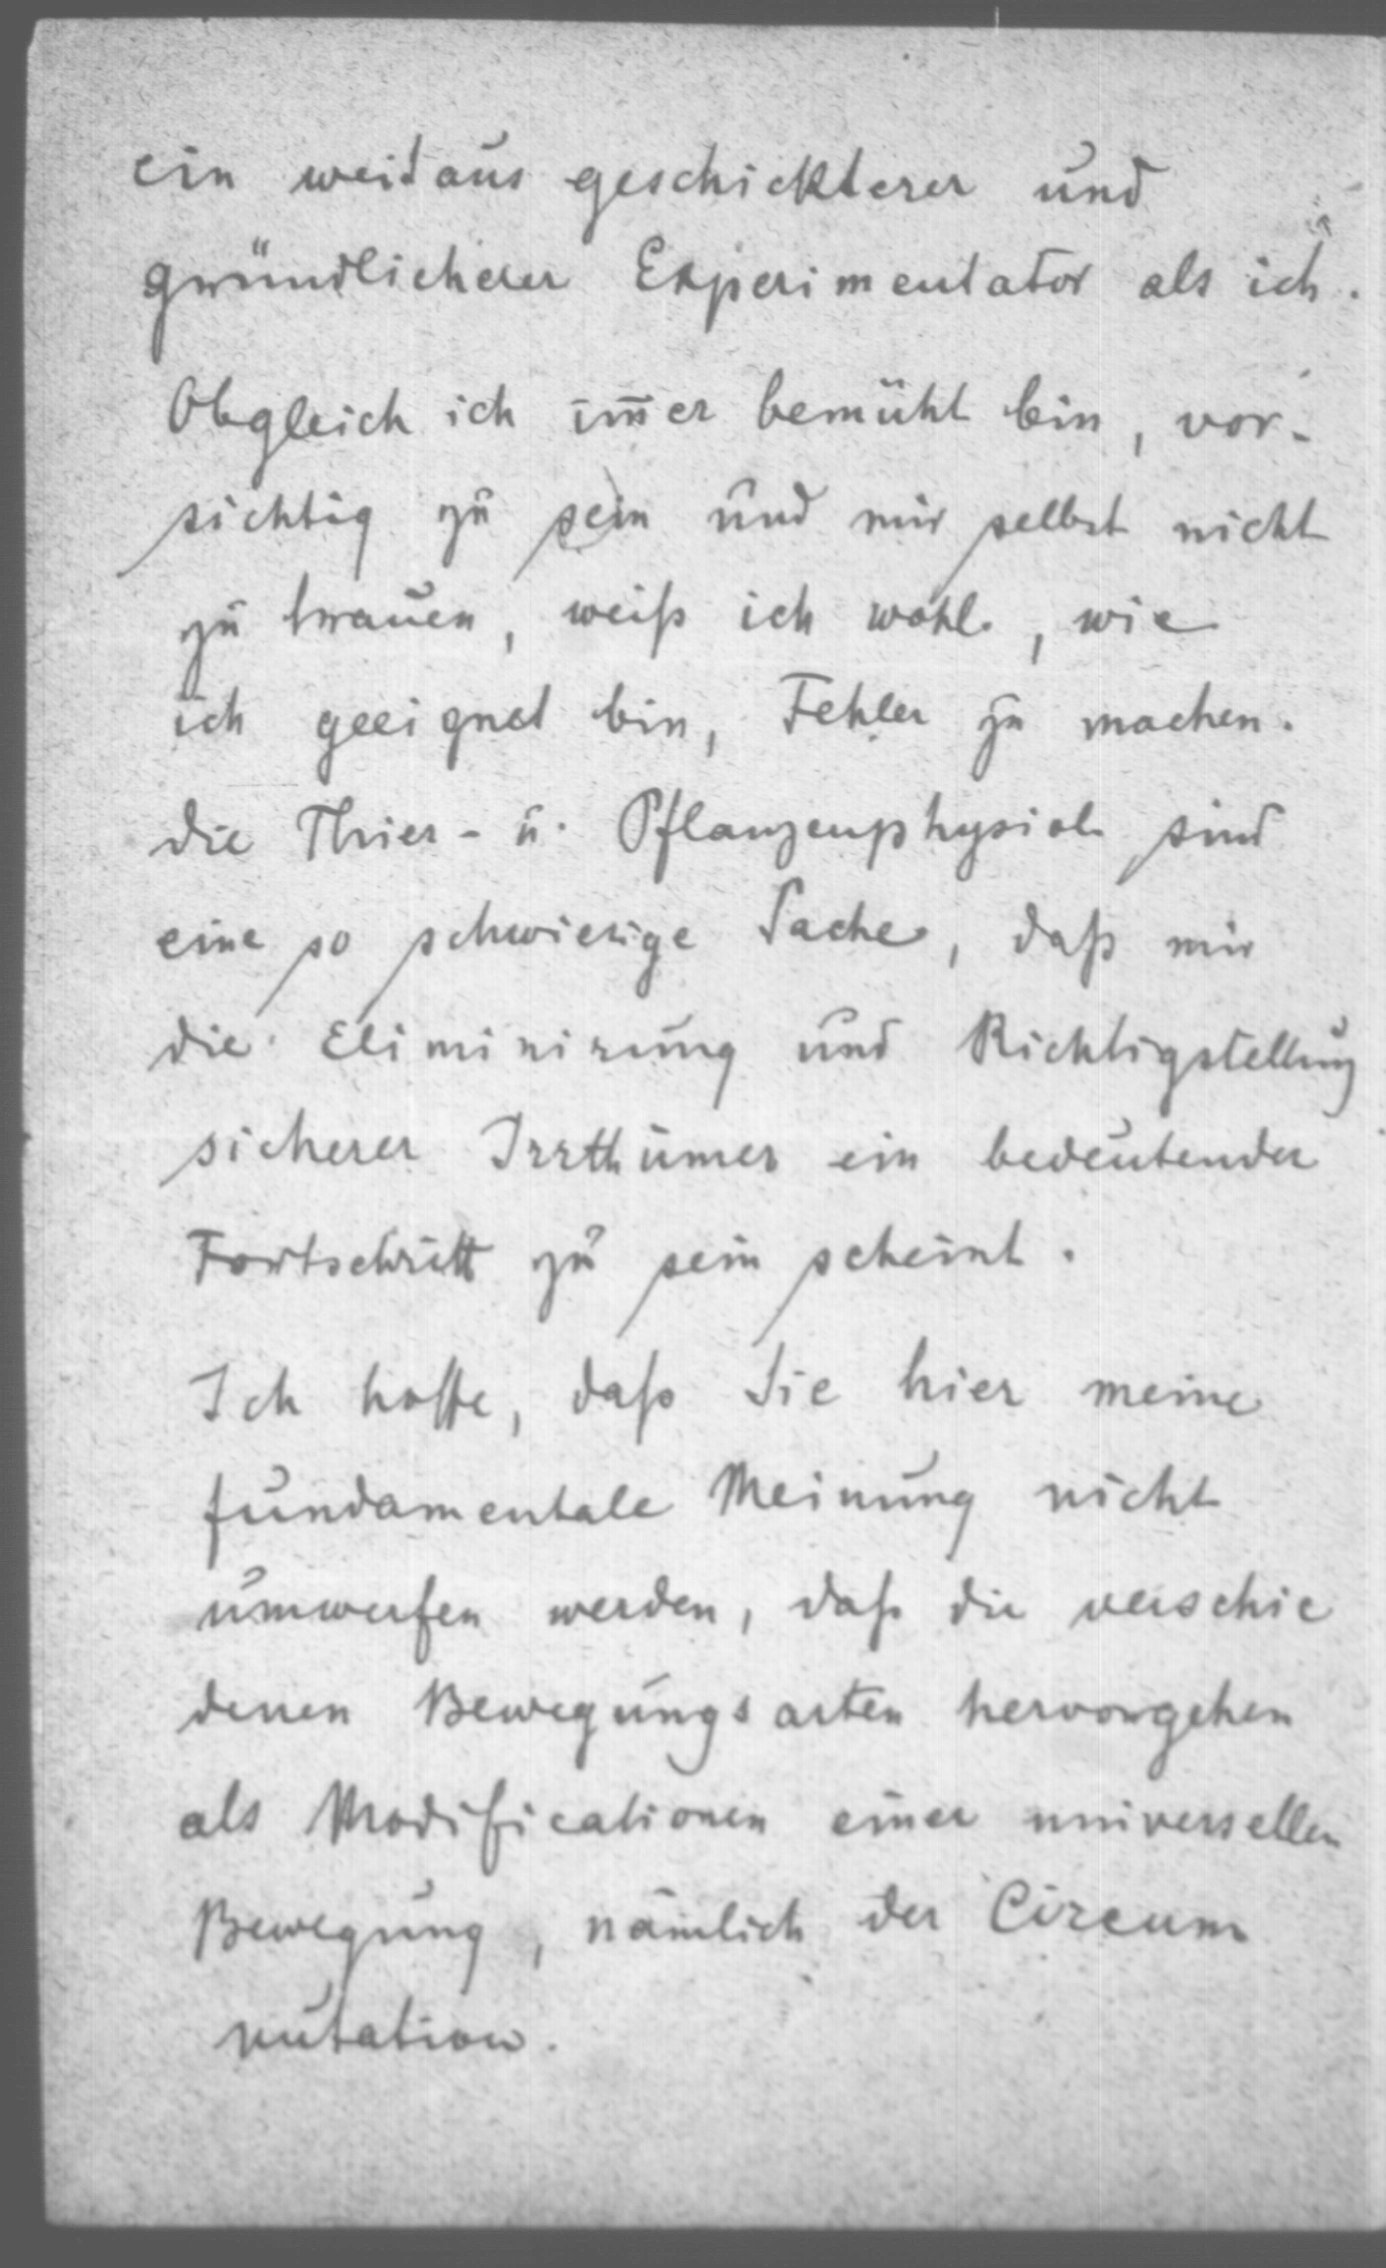 ein weitaus geschickterer und
gründlicherer Experimentator als ich.
Obgleich ich im̅er bemüht bin, vor-
sichtig zu sein und mir selbst nicht
zu trauen, weiß ich wohl, wie
ich geeignet bin, Fehler zu machen.
die Thier- u. Pflanzenphysiol. sind
eine so schwierige Sache, daß mir
die Eliminirung und Richtigstellung
sicherer Irrthümer ein bedeutender
Fortschritt zu sein scheint.
Ich hoffe, daß Sie hier meine
fundamentale Meinung nicht
umwerfen werden, daß die verschie
denen Bewegungsarten hervorgehen
als Modificationen einer universellen
Bewegung, nämlich der Circum
nutation.